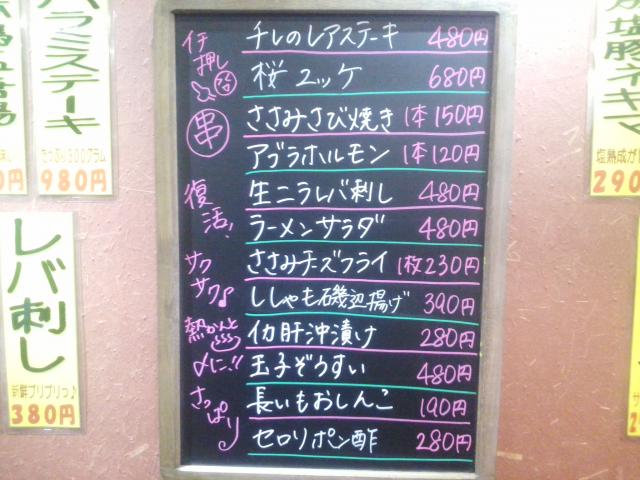 イチ押し
チレのレアステーキ 480円
桜ユッケ 680円
串
ささみさび焼き 1本150円
アブラホルモン 1本120円
復活!
生ニラレバ刺し 480円
ラーメンサラダ 480円
サクサク♪
ささみチーズフライ 1枚230円
ししゃも磯辺揚げ 390円
熱かんと
イカ肝沖漬け 280円
〆に!!
玉子ぞうすい 480円
さっぱり
長いもおしんこ 190円
セロリポン酢 280円
ハラミステーキ
たっぷり300グラム
980円
レバ刺し
新鮮プリプリっ♪
380円
塩豚ネギマ
塩熟成が
290